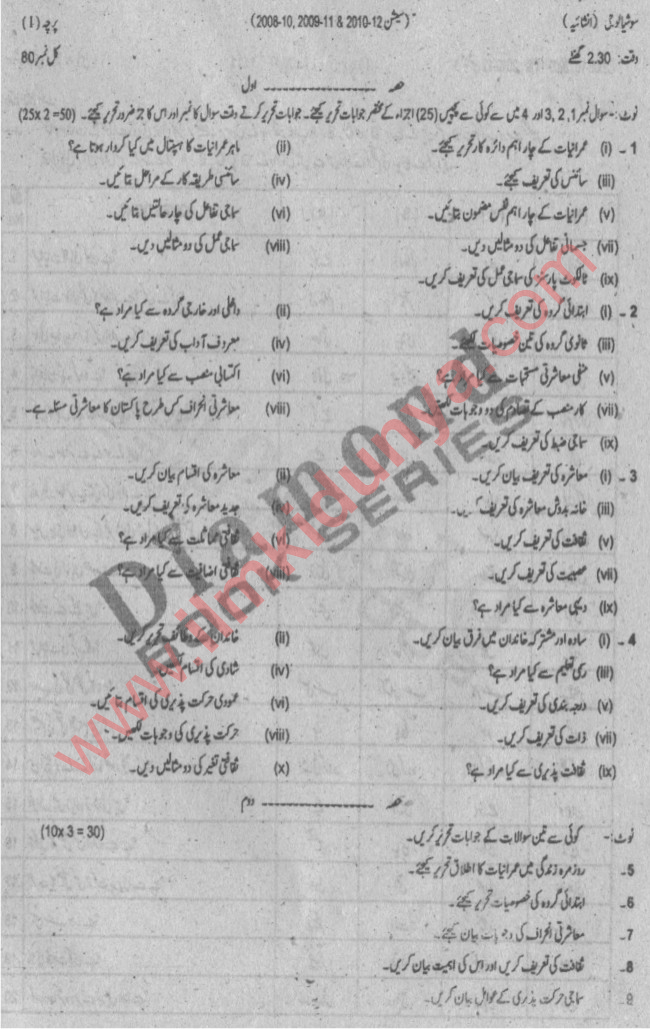 سوشیالوجی (انشائیہ) (سیشن 2010-12 & 2009-11 ,2008-10) پرچہ (I)
وقت: 2.30 گھنٹے کل نمبر 80
حصہ ــــــــــــ اول
نوٹ:- سوال نمبر 1, 2, 3 اور 4 میں سے کوئی سے پچیس (25) اجزاء کے مختصر جوابات تحریر کیجئے۔ جوابات تحریر کرتے وقت سوال کا نمبر اور اس کا جز ضرور تحریر کیجئے۔ (25x 2 =50)
1 - (i) عمرانیات کے چار اہم دائرہ کار تحریر کیجئے۔ (ii) ماہر عمرانیات کا ہسپتال میں کیا کردار ہوتا ہے؟
(iii) سائنس کی تعریف کیجئے۔ (iv) سائنسی طریقہ کار کے مراحل بتائیں۔
(v) عمرانیات کے چار اہم نفس مضمون بتائیں۔ (vi) سماجی تفاعل کی چار حالتیں بتائیں۔
(vii) جسمانی تفاعل کی دو مثالیں دیں۔ (viii) سماجی عمل کی دو مثالیں دیں۔
(ix) ٹالکوٹ پارسنز کی سماجی عمل کی تعریف کریں۔
2 - (i) ابتدائی گروہ کی تعریف کریں۔ (ii) داخلی اور خارجی گروہ سے کیا مراد ہے؟
(iii) ثانوی گروہ کی تین خصوصیات لکھیئے۔ (iv) معروف آداب کی تعریف کریں۔
(v) منفی معاشرتی مستحبات سے کیا مراد ہے؟ (vi) اکتسابی منصب سے کیا مراد ہے؟
(vii) کار منصب کے تصادم کی دو وجوہات لکھیں۔ (viii) معاشرتی انحراف کس طرح پاکستان کا معاشرتی مسئلہ ہے۔
(ix) سماجی ضبط کی تعریف کریں۔
3 - (i) معاشرہ کی تعریف بیان کریں۔ (ii) معاشرہ کی اقسام بیان کریں۔
(iii) خانہ بدوش معاشرہ کی تعریف کریں۔ (iv) جدید معاشرہ کی تعریف کریں۔
(v) ثقافت کی تعریف کریں۔ (vi) ثقافتی مماثلت سے کیا مراد ہے؟
(vii) عصبیت کی تعریف کریں۔ (viii) ثقافتی اضافیت سے کیا مراد ہے؟
(ix) دیہی معاشرہ سے کیا مراد ہے؟
4 - (i) سادہ اور مشترکہ خاندان میں فرق بیان کریں۔ (ii) خاندان کے وظائف تحریر کریں۔
(iii) رسمی تعلیم سے کیا مراد ہے؟ (iv) شادی کی اقسام لکھیں۔
(v) درجہ بندی کی تعریف کریں۔ (vi) عمودی حرکت پذیری کی اقسام بتائیں۔
(vii) ذات کی تعریف کریں۔ (viii) حرکت پذیری کی وجوہات لکھیں۔
(ix) ثقافت پذیری سے کیا مراد ہے؟ (x) ثقافتی تغیر کی دو مثالیں دیں۔
حصہ ــــــــــــ دوم
نوٹ:- کوئی سے تین سوالات کے جوابات تحریر کریں۔ (10x 3 = 30)
5- روزمرہ زندگی میں عمرانیات کا اطلاق تحریر کیجئے۔
6- ابتدائی گروہ کی خصوصیات تحریر کیجئے۔
7- معاشرتی انحراف کی وجوہات بیان کیجئے۔
8- ثقافت کی تعریف کریں اور اس کی اہمیت بیان کریں۔
9- سماجی حرکت پذیری کے عوامل بیان کریں۔
Diamond
BOOK SERIES
www.ilmkidunya.com